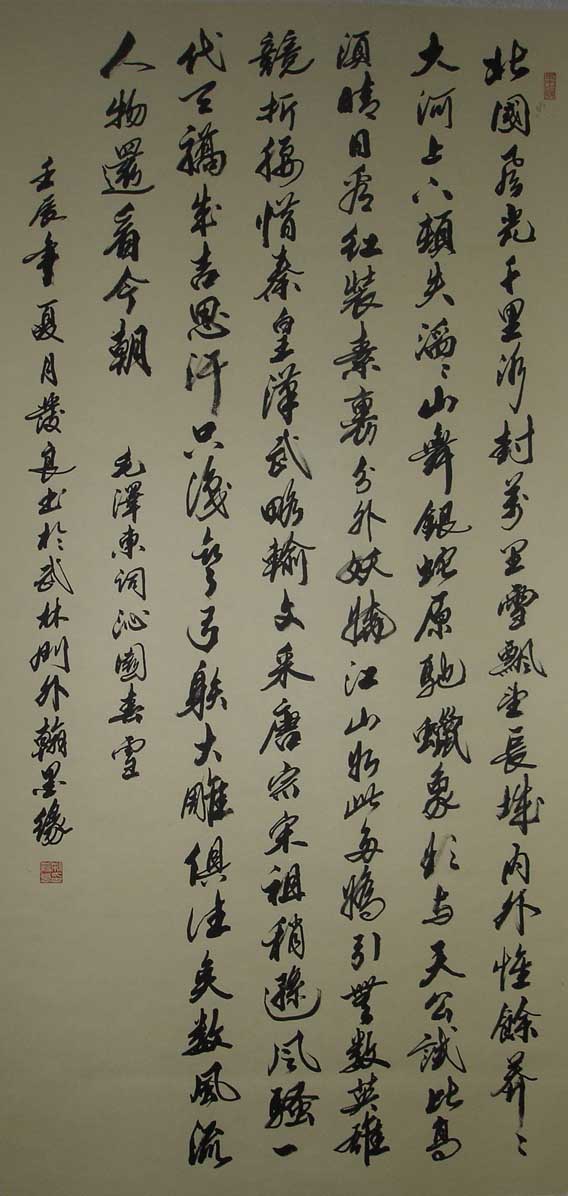 北國風光千里冰封萬里雪飄望長城內外惟餘莽〻
大河上下頓失滔〻山舞銀蛇原馳蠟象欲与天公試比高
須晴日看红裝素裹分外妖嬈江山如此多嬌引無数英雄
競折腰惜秦皇漢武略輸文采唐宗宋祖稍遜風騷一
代天驕成吉思汗只識彎弓射大雕俱往矣数風流
人物還看今朝
毛澤東詞沁園春雪
壬辰年夏月發良书於武林門外翰墨缘